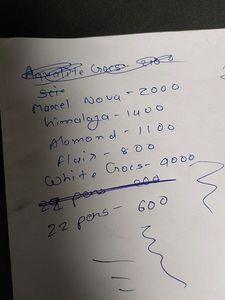 Aqualite Crocs - 2100
Scie
Marcel Nova - 2000
himalaya - 1400
Alomond - 1100
Flair - 800
White Crocs - 9000
22 pens - 600
22 pens - 600